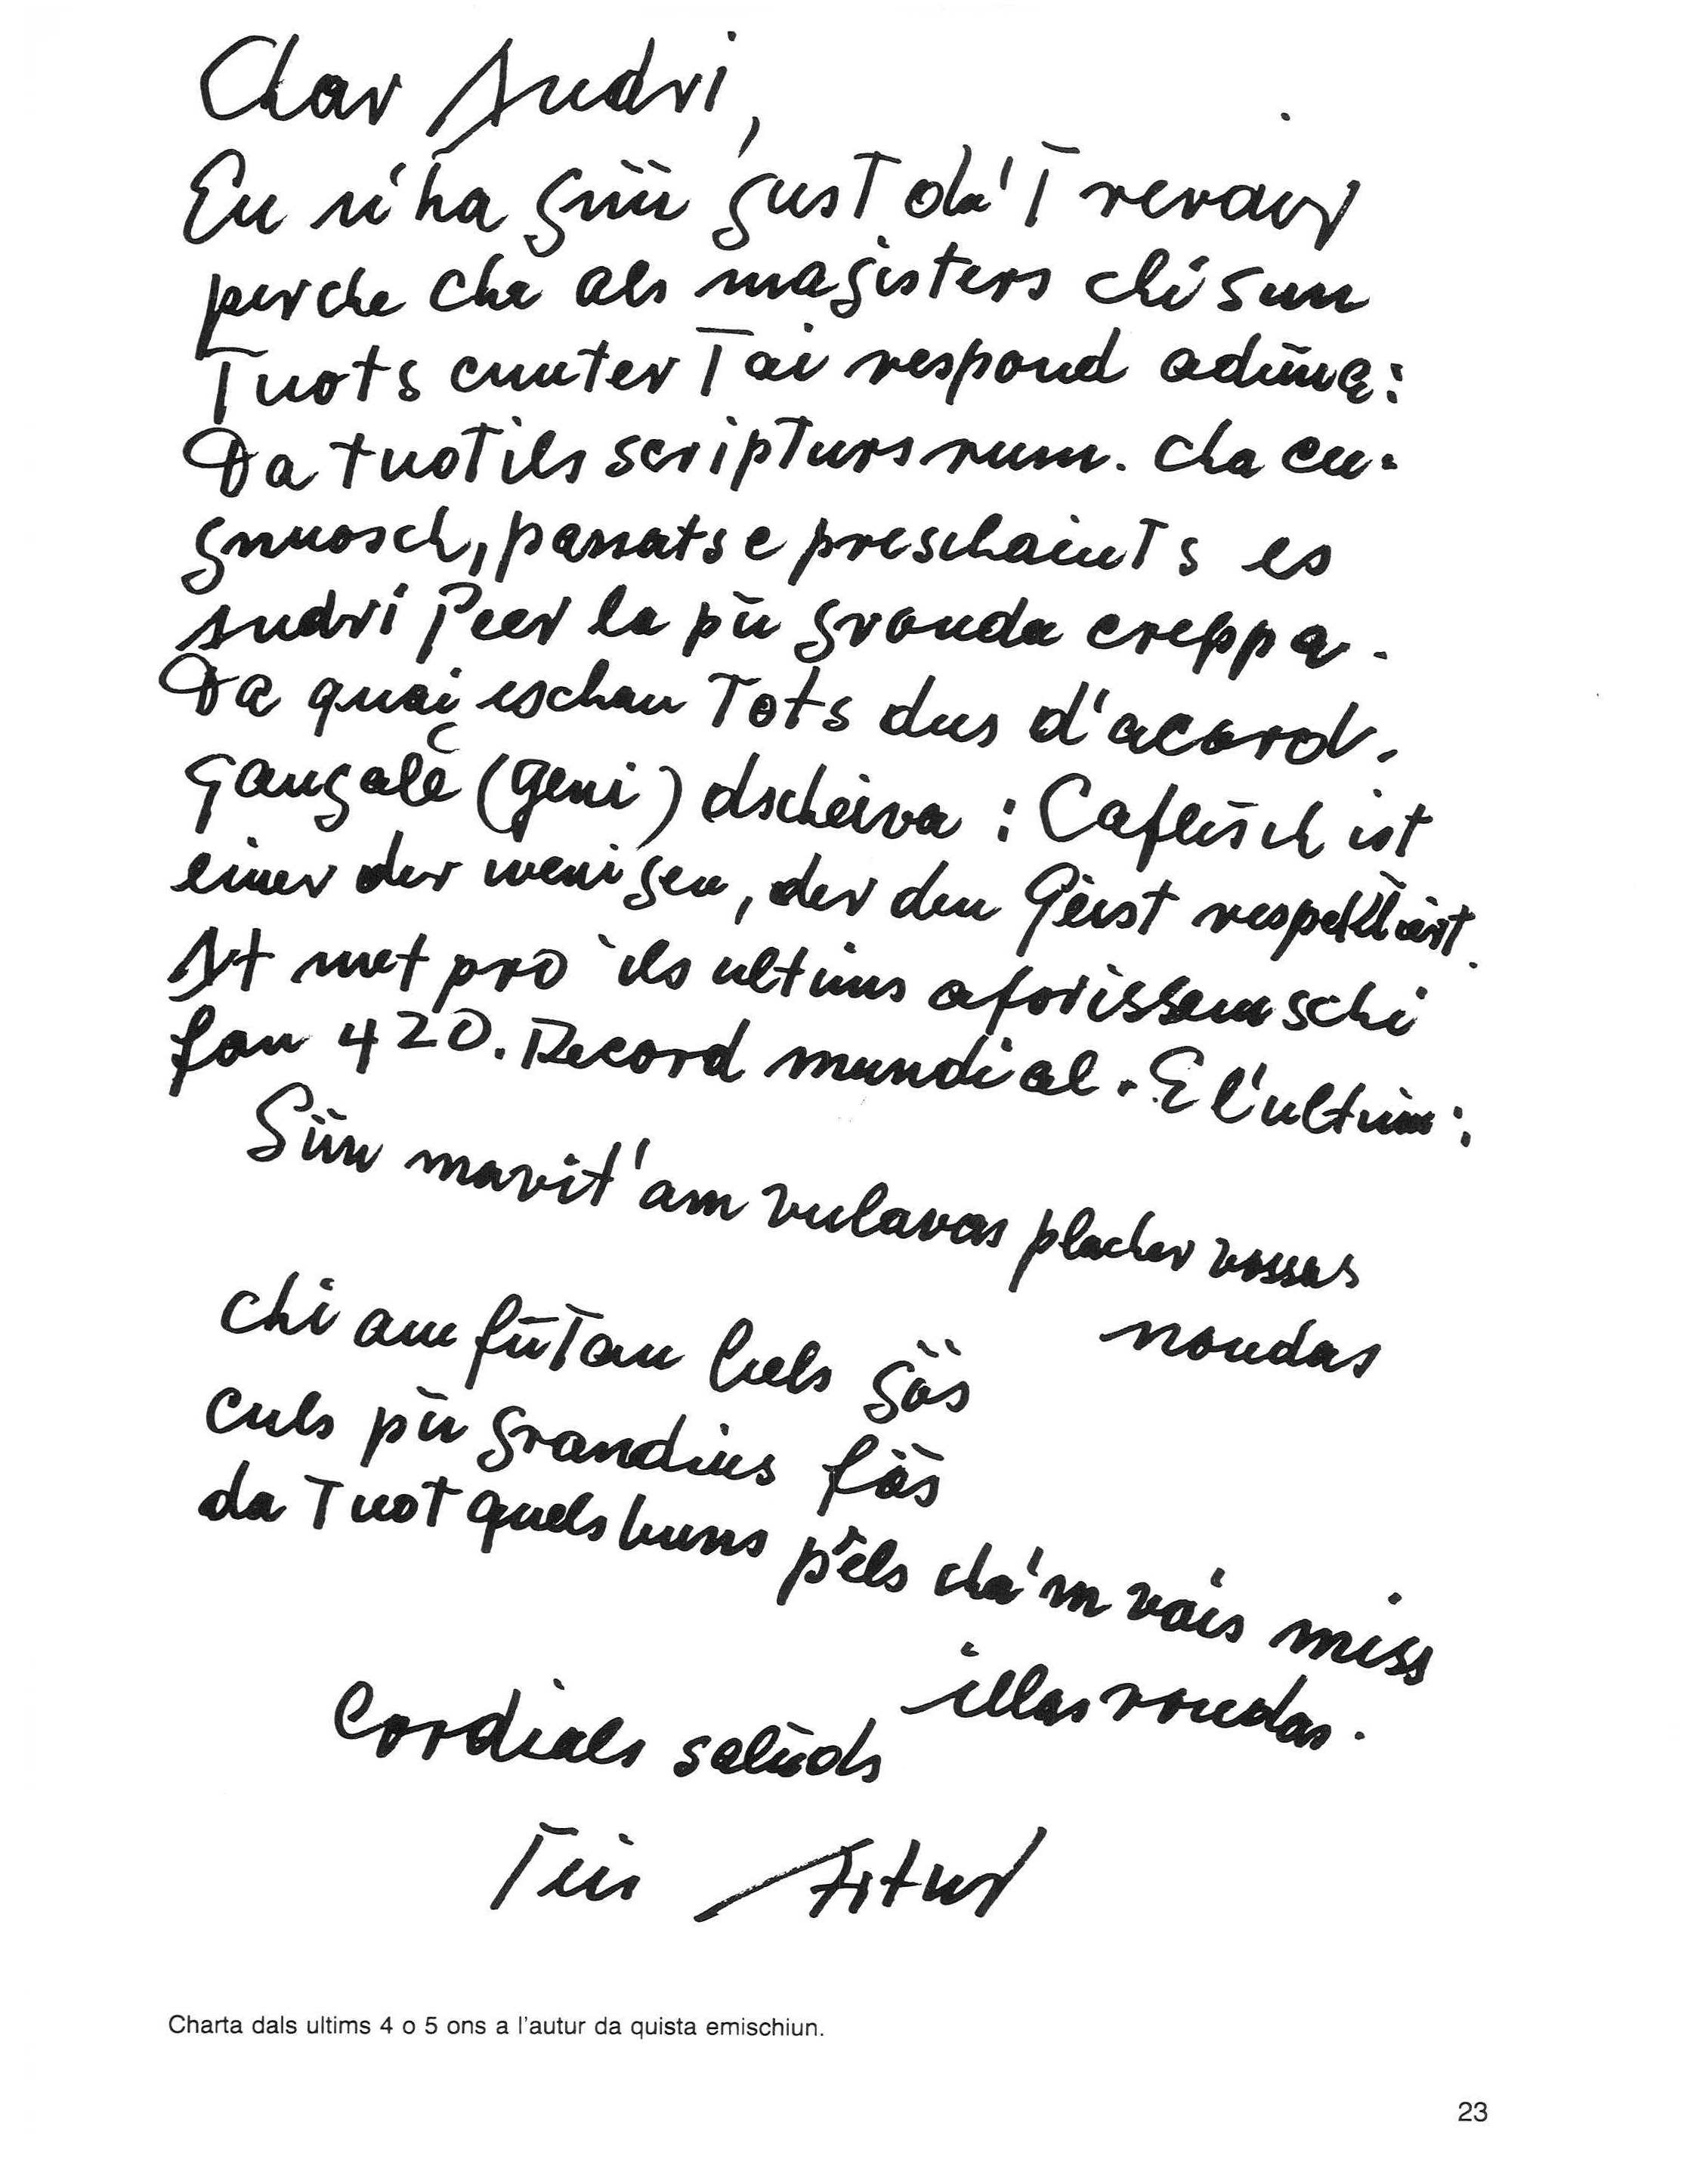 Char Andri,
Eu n'ha gnü gust da'T revair
perche cha als magisters chi sun
Tuots cunter Tai respond adüna:
Da tuot ils scripturs rum. cha cu-
gnuosch, passats e preschaints es
Andri Peer la pü gronda creppa.
Da quai eschan Tots dus d'acord.
Gangalè (geni) dscheiva: Caflisch ist
einer der wenigen, der den Geist respektiert.
At met pro ils ultims aforissems chi
fan 420. Record mundial. E l'ultim:
Sün mavit'am vulavas plachar vossas
nondas
chi am fütan bels gös
culs pü grandius fös
da Tuot quels buns pels cha'm vais miss
illas rondas.
Cordials salüds
Teis Artur
Charta dals ultims 4 o 5 ons a l'autur da quista emischiun.
23